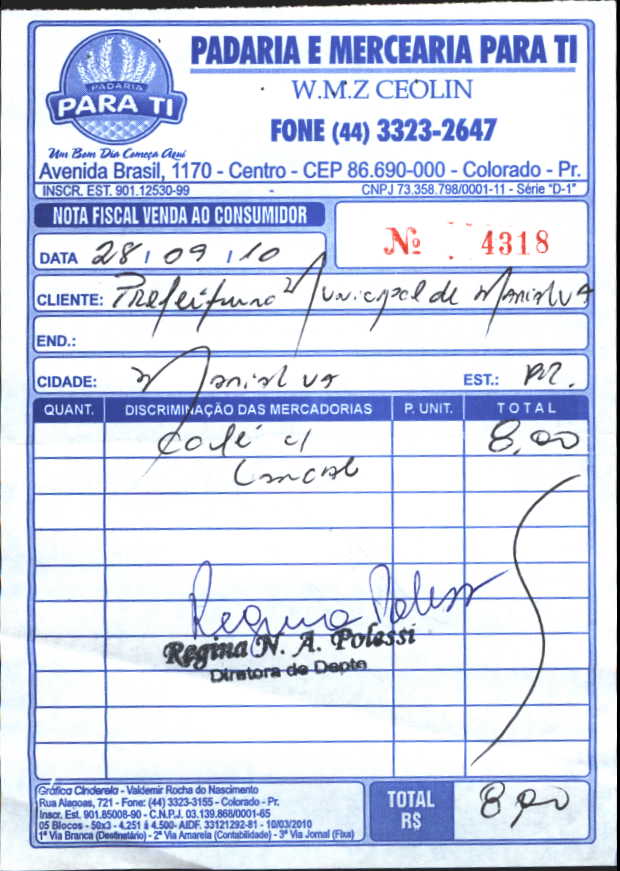 PADARIA
PARA TI
Um Bom Dia Começa Aqui
PADARIA E MERCEARIA PARA TI
W.M.Z CEOLIN
FONE (44) 3323-2647
Avenida Brasil, 1170 - Centro - CEP 86.690-000 - Colorado - Pr.
INSCR. EST. 901.12530-99 - CNPJ 73.358.798/0001-11 - Série "D-1"
NOTA FISCAL VENDA AO CONSUMIDOR
Nº 4318
DATA 28/09/10
CLIENTE: Prefeitura Municipal de Marialva
END.:
CIDADE: Marialva EST.: PR.
QUANT. DISCRIMINAÇÃO DAS MERCADORIAS P. UNIT. TOTAL
Café c/ 8,00
Regina Polessi
Regina N. A. Polessi
Diretora de Depto
Gráfica Cinderela - Valdemir Rocha do Nascimento
Rua Alagoas, 721 - Fone: (44) 3323-3155 - Colorado - Pr.
Inscr. Est. 901.85008-90 - C.N.P.J. 03.139.868/0001-65
05 Blocos - 50x3 - 4.251 á 4.500- AIDF. 33121292-81 - 10/03/2010
1ª Via Branca (Destinatário) - 2ª Via Amarela (Contabilidade) - 3ª Via Jornal (Fixa)
TOTAL R$ 8,00